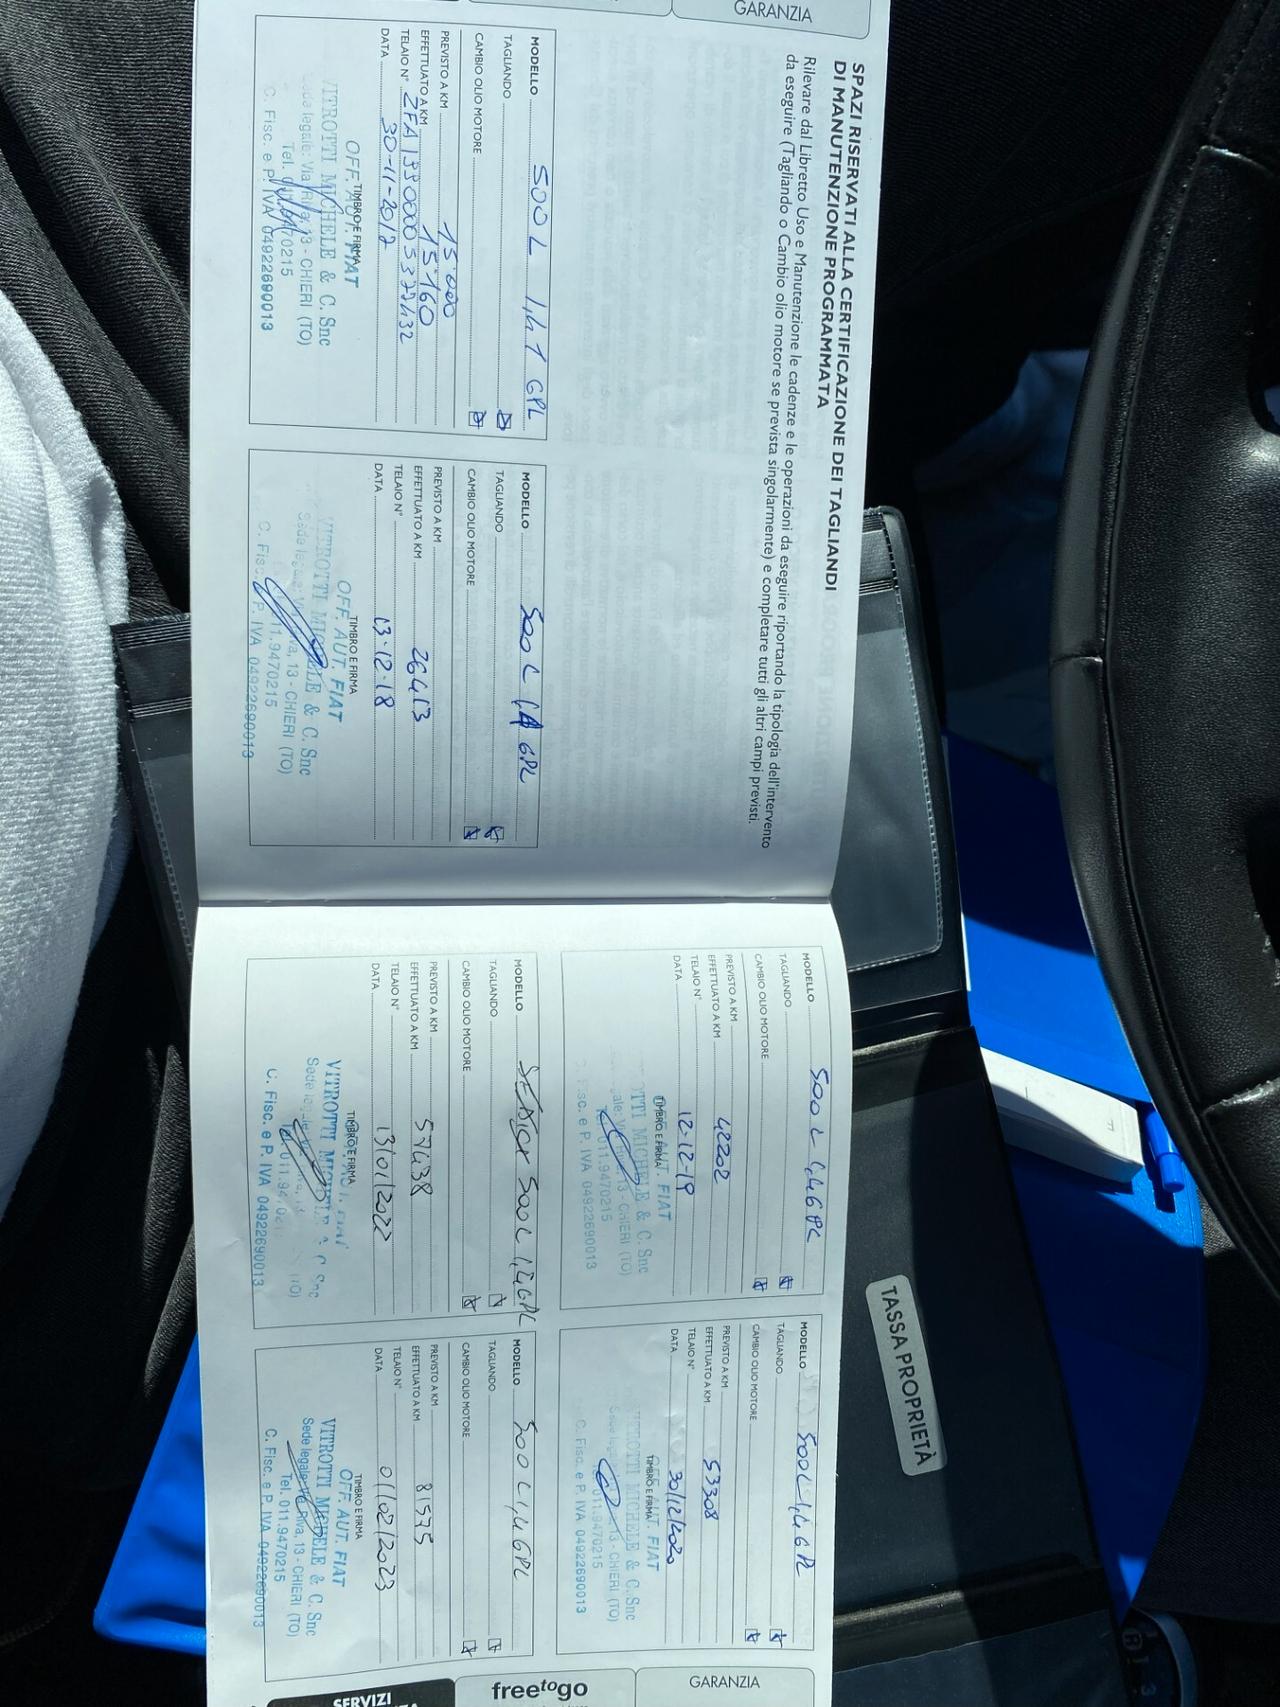 GARANZIA
SPAZI RISERVATI ALLA CERTIFICAZIONE DEI TAGLIANDI
DI MANUTENZIONE PROGRAMMATA
Rilevare dal Libretto Uso e Manutenzione le cadenze e le operazioni da eseguire riportando la tipologia dell'intervento
da eseguire (Tagliando o Cambio olio motore se prevista singolarmente) e completare tutti gli altri campi previsti.
MODELLO 500 L 1,4 GPL
TAGLIANDO
CAMBIO OLIO MOTORE
PREVISTO A KM 15.000
EFFETTUATO A KM 15160
TELAIO N°
DATA 30-11-2017
TIMBRO E FIRMA
OFF. AUT. FIAT
VITROTTI MICHELE & C. Snc
Sede legale: Via Riva, 13 - CHIERI (TO)
C. Fisc. e P. IVA 04922690013
MODELLO 500 L 1,4 GPL
TAGLIANDO
CAMBIO OLIO MOTORE
PREVISTO A KM
EFFETTUATO A KM 26413
TELAIO N°
DATA 13-12-18
TIMBRO E FIRMA
OFF. AUT. FIAT
VITROTTI MICHELE & C. Snc
Sede legale: Via Riva, 13 - CHIERI (TO)
011.9470215
C. Fisc. e P. IVA 04922690013
MODELLO 500 L 1,4 GPL
TAGLIANDO
CAMBIO OLIO MOTORE
PREVISTO A KM
EFFETTUATO A KM 42202
TELAIO N°
DATA 12-12-19
TIMBRO E FIRMA
AUT. FIAT
MICHELE & C. Snc
13 - CHIERI (TO)
011.9470215
C. Fisc. e P. IVA 04922690013
MODELLO 500 L 1,4 GPL
TAGLIANDO
CAMBIO OLIO MOTORE
PREVISTO A KM
EFFETTUATO A KM 53308
TELAIO N°
DATA 30/12/2020
TIMBRO E FIRMA
OFF. AUT. FIAT
VITROTTI MICHELE & C. Snc
13 - CHIERI (TO)
011.9470215
C. Fisc. e P. IVA 04922690013
MODELLO 500 L 1,4 GPL
TAGLIANDO
CAMBIO OLIO MOTORE
PREVISTO A KM
EFFETTUATO A KM 57438
TELAIO N°
DATA 13/01/2022
TIMBRO E FIRMA
VITROTTI MICHELE & C. Snc
Sede legale
C. Fisc. e P. IVA 04922690013
MODELLO 500 L 1,4 GPL
TAGLIANDO
CAMBIO OLIO MOTORE
PREVISTO A KM
EFFETTUATO A KM 81575
TELAIO N°
DATA 01/02/2023
TIMBRO E FIRMA
OFF. AUT. FIAT
VITROTTI MICHELE & C. Snc
Sede legale: Via Riva, 13 - CHIERI (TO)
Tel. 011.9470215
C. Fisc. e P. IVA 04922690013
SERVIZI
freetogo
GARANZIA
TASSA PROPRIETÀ